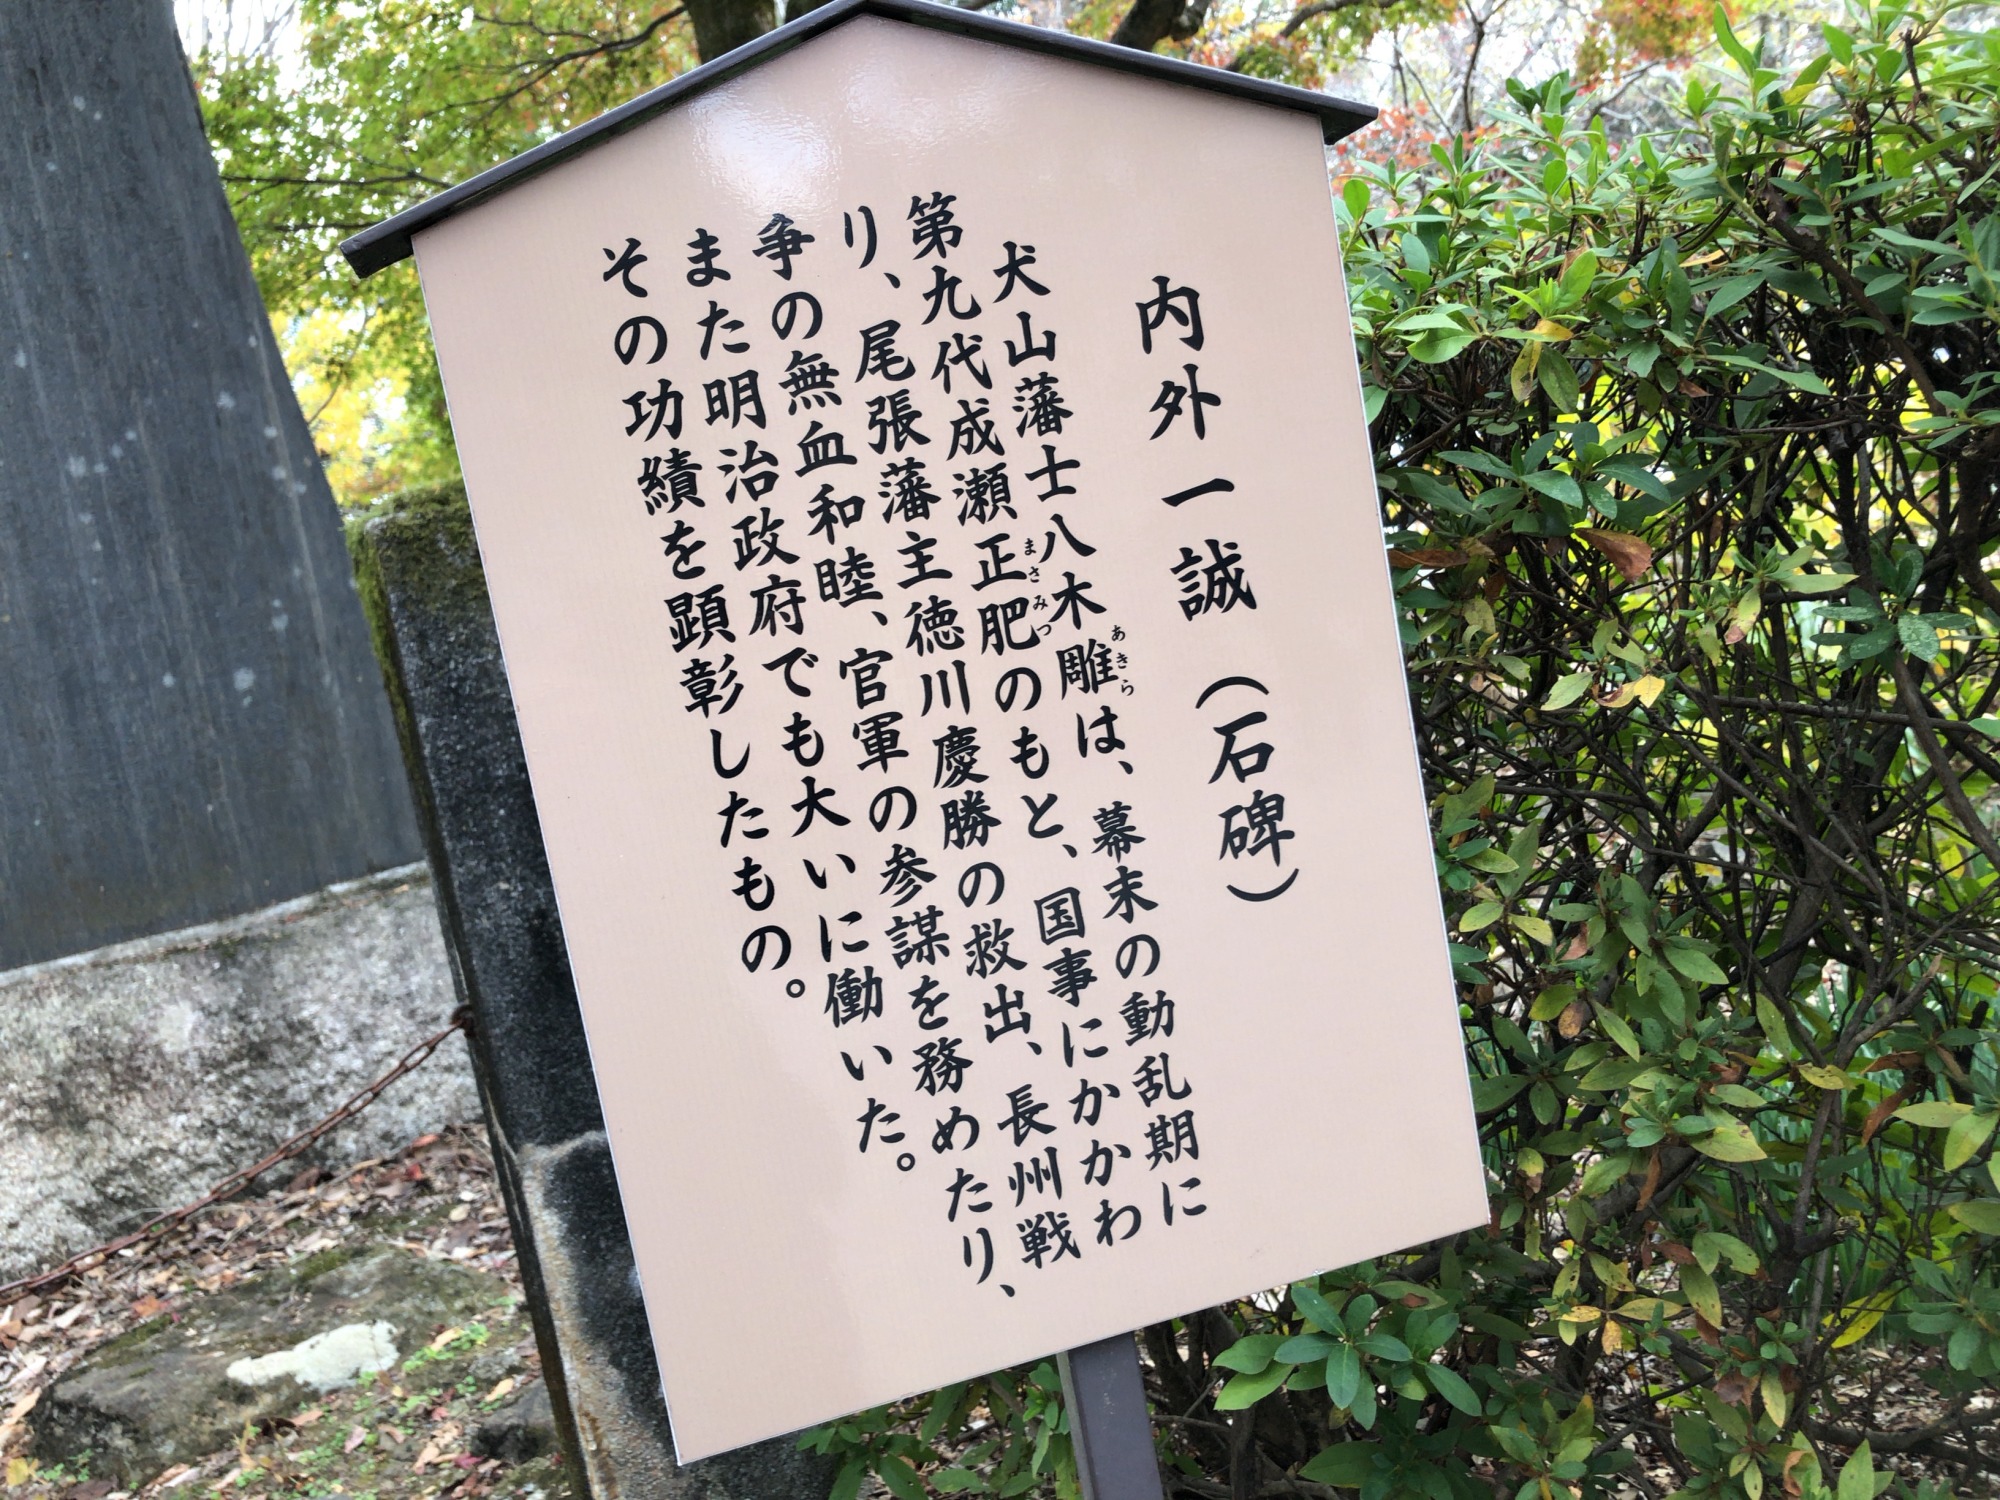 内外一誠（石碑）
犬山藩士八木雕は、幕末の動乱期に
あきら
第九代成瀬正肥のもと、国事にかかわ
まさみつ
り、尾張藩主徳川慶勝の救出、長州戦
争の無血和睦、官軍の参謀を務めたり、
また明治政府でも大いに働いた。
その功績を顕彰したもの。